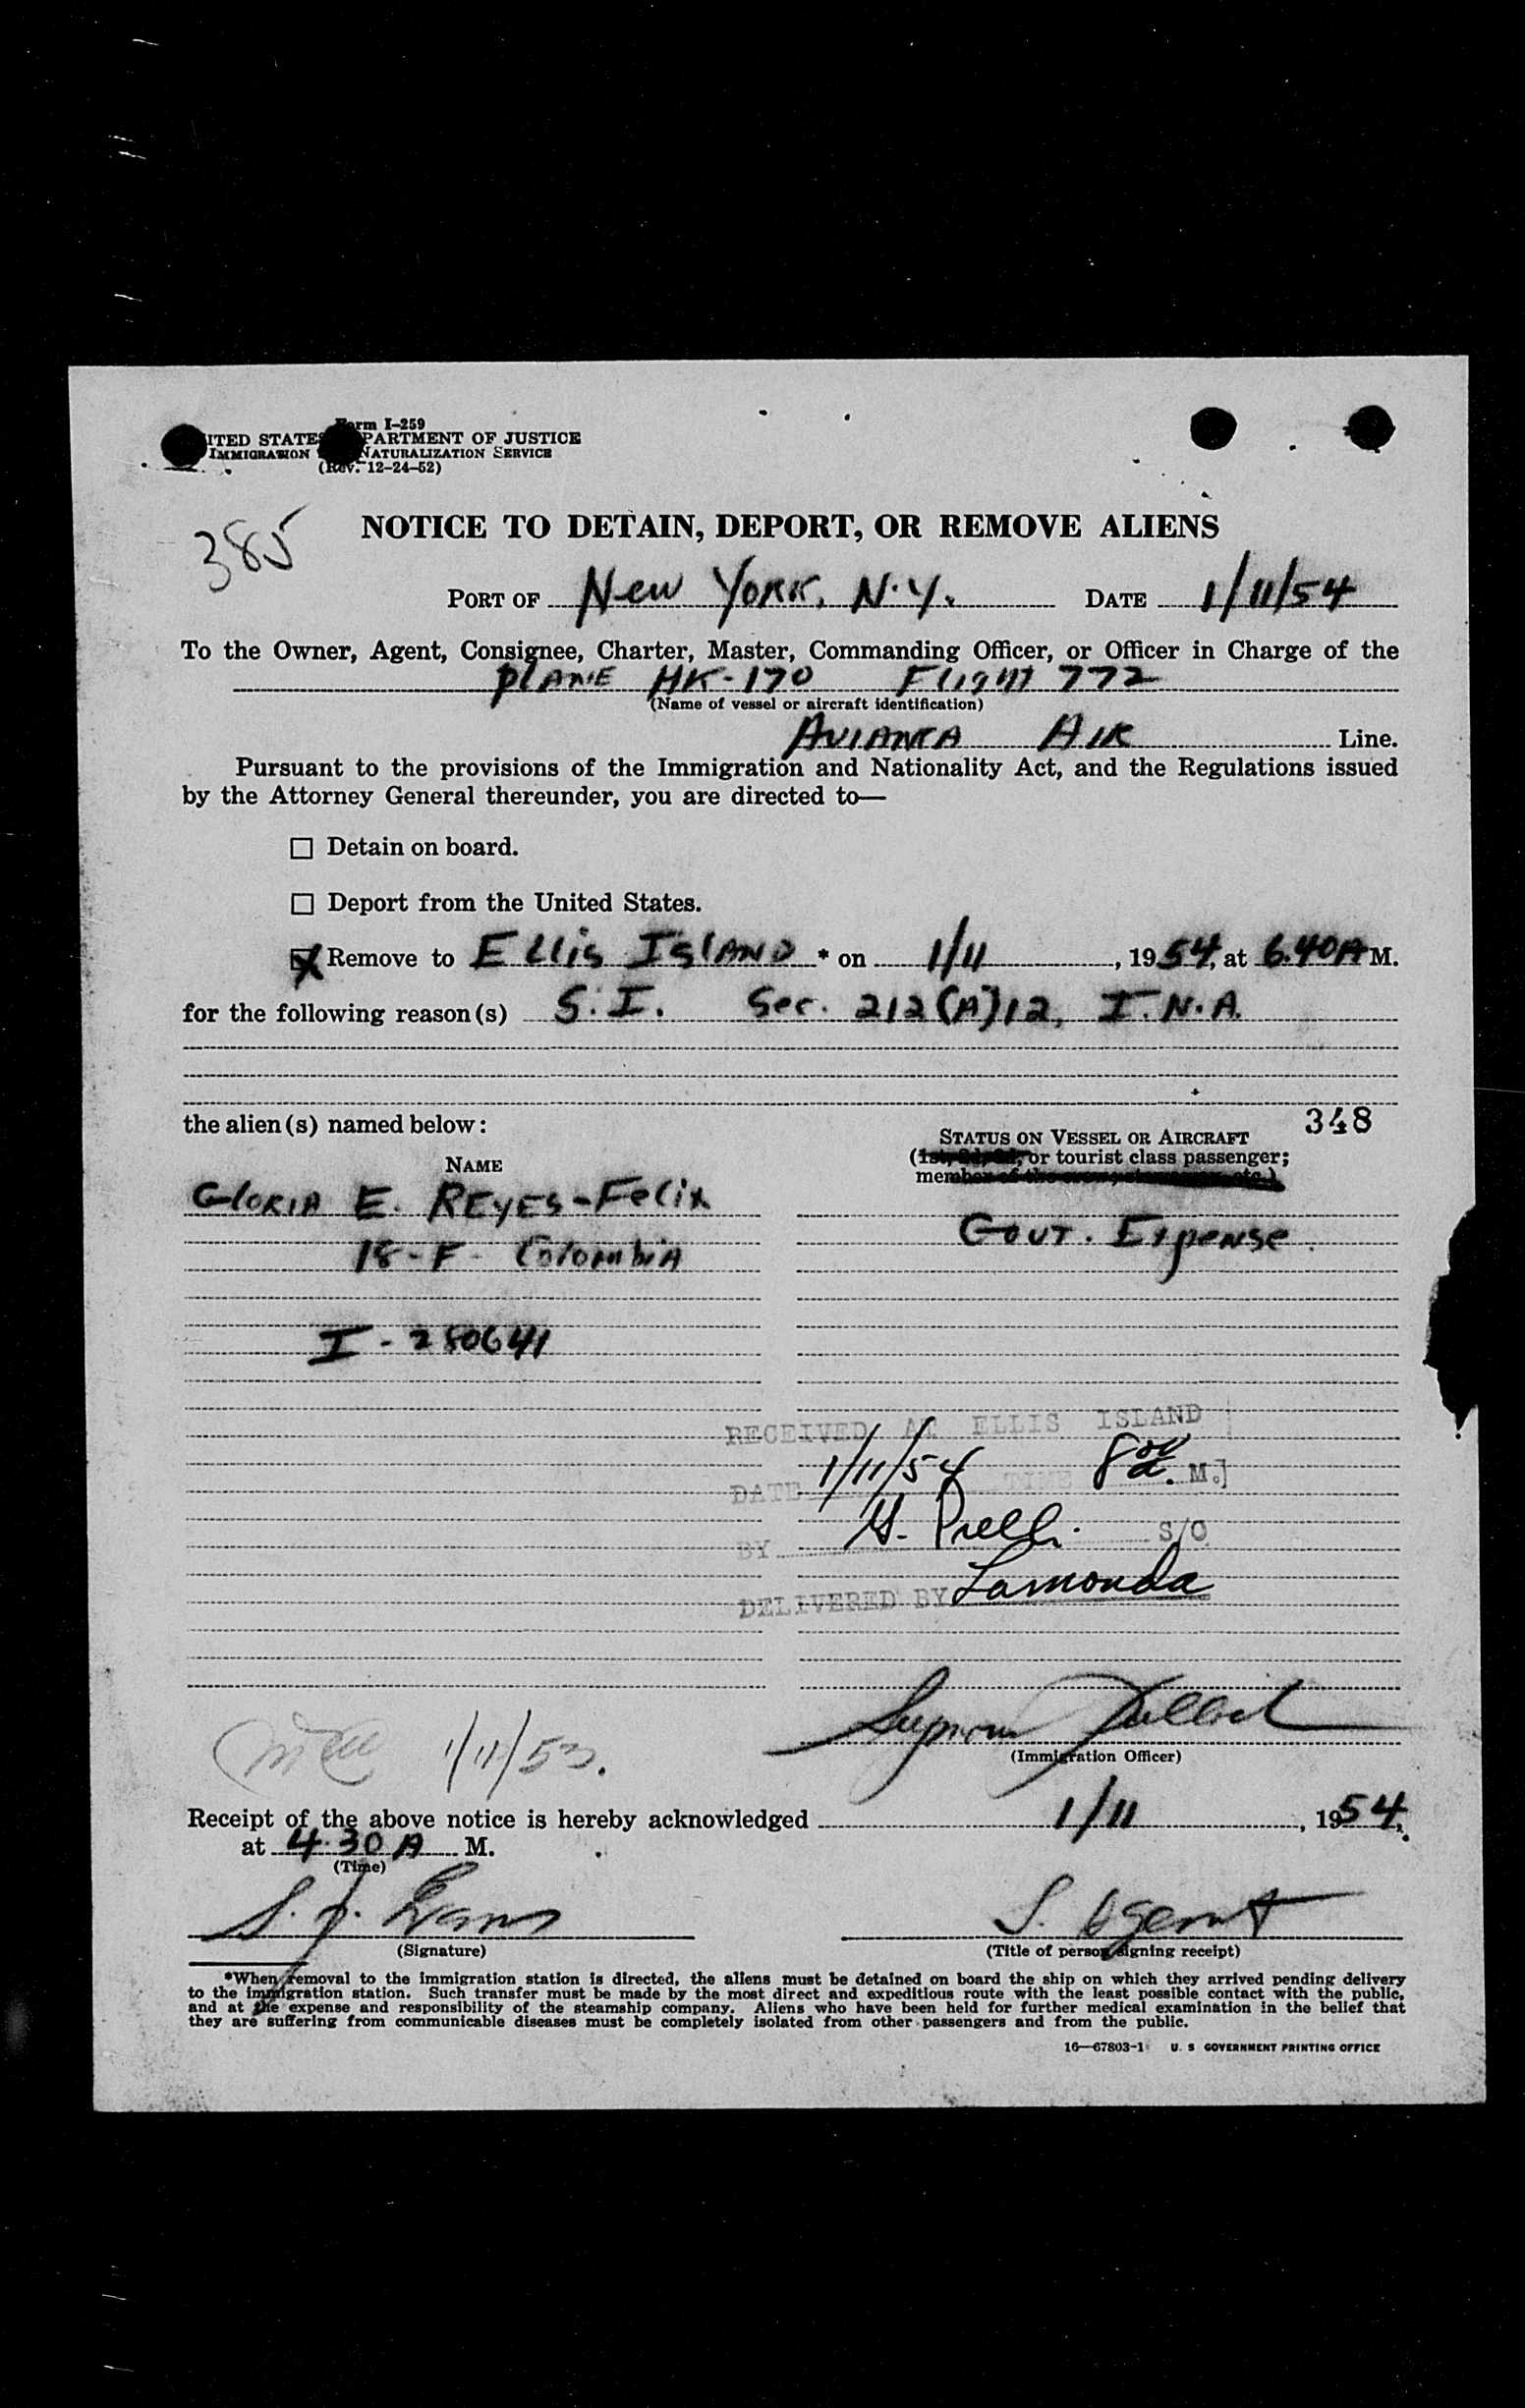 Form I-259
ITED STATES PARTMENT OF JUSTICE
IMMIGRATION NATURALIZATION SERVICE
(Rev. 12-24-52)
385
NOTICE TO DETAIN, DEPORT, OR REMOVE ALIENS
PORT OF New York, N.Y. DATE 1/11/54
To the Owner, Agent, Consignee, Charter, Master, Commanding Officer, or Officer in Charge of the
PLANE HK-170 Flight 772
(Name of vessel or aircraft identification)
AVIANCA AIR Line.
Pursuant to the provisions of the Immigration and Nationality Act, and the Regulations issued
by the Attorney General thereunder, you are directed to—
☐ Detain on board.
☐ Deport from the United States.
☒ Remove to Ellis Island * on 1/11, 1954, at 6.40 A M.
for the following reason(s) S.I. Sec. 212(A)12, I.N.A.
the alien(s) named below:
348
STATUS ON VESSEL OR AIRCRAFT
(1st, 2d, 3d, or tourist class passenger;
member of the crew, stowaway, etc.)
NAME
Gloria E. Reyes-Felix
18-F- Colombia
Govt. Expense.
I-280641
RECEIVED AT ELLIS ISLAND
DATE 1/11/54 TIME 8 00 a. M.
BY S/O
DELIVERED BY Lamonda
(Immigration Officer)
1/11/53.
Receipt of the above notice is hereby acknowledged 1/11, 1954,
at 4.30 A M.
(Time)
S. J. Evans
S. Agent
(Signature)
(Title of person signing receipt)
*When removal to the immigration station is directed, the aliens must be detained on board the ship on which they arrived pending delivery
to the immigration station. Such transfer must be made by the most direct and expeditious route with the least possible contact with the public,
and at the expense and responsibility of the steamship company. Aliens who have been held for further medical examination in the belief that
they are suffering from communicable diseases must be completely isolated from other passengers and from the public.
16—67803-1 U. S GOVERNMENT PRINTING OFFICE